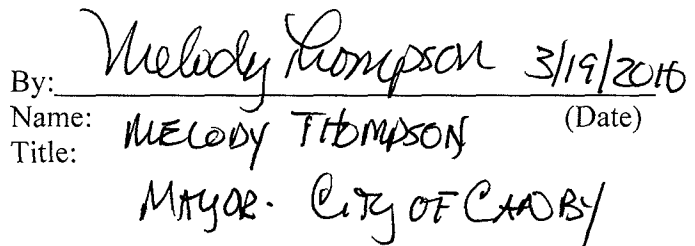 By: Melody Thompson 3/19/2010
Name: MELODY THOMPSON (Date)
Title:
MAYOR - CITY OF CANBY